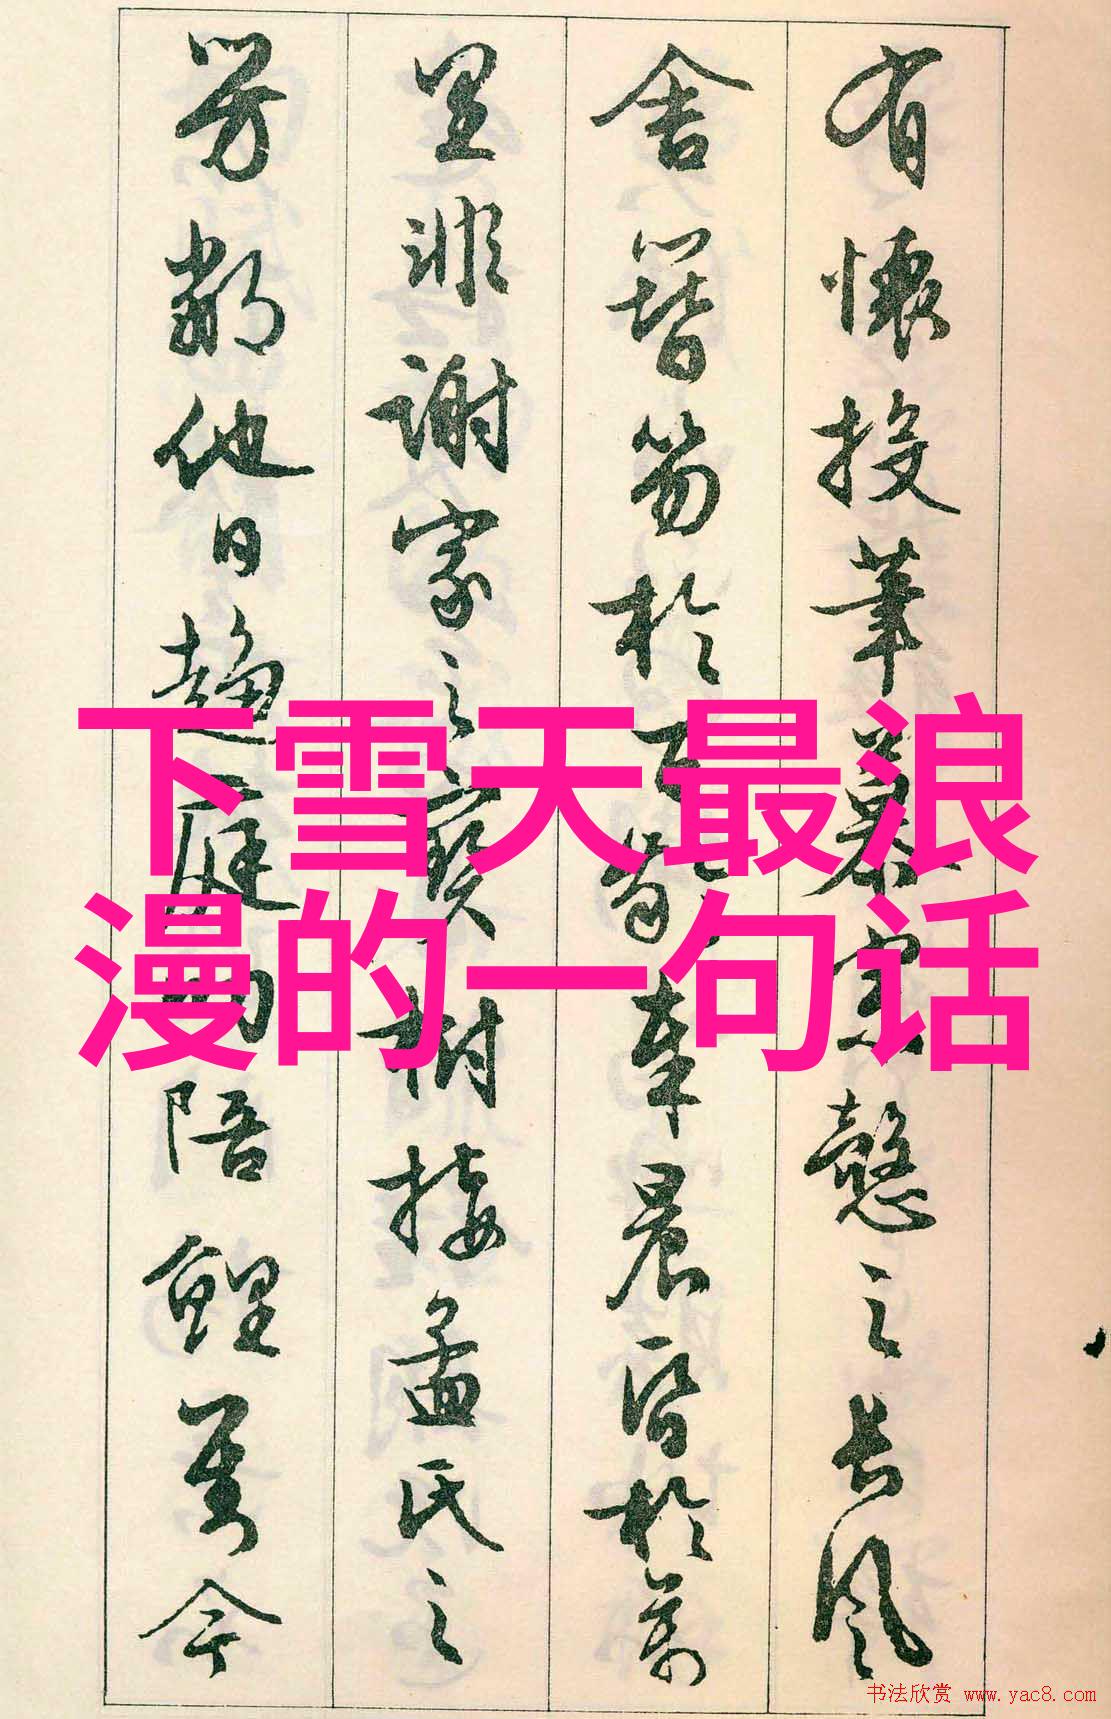 有懷投筆慕宗慤之長風
舍簪笏於百齡奉晨昏於萬
里非謝家之寶樹接孟氏之
芳鄰他日趨庭叨陪鯉對今
下雪天最浪
漫的一句话
书法欣赏 www.yac8.com